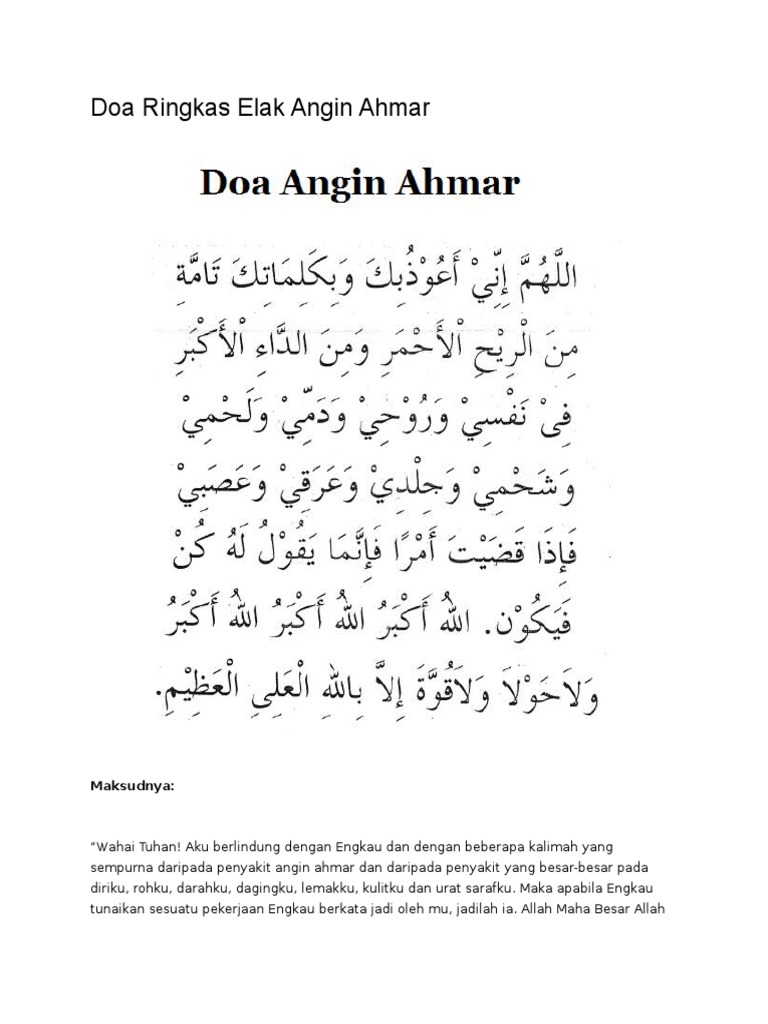 Doa Ringkas Elak Angin Ahmar
Doa Angin Ahmar
اللَّهُمَّ إِنِّيْ أَعُوْذُبِكَ وَبِكَلِمَاتِكَ تَامَّةِ
مِنَ الْرِيْحِ الْأَحْمَرِ وَمِنَ الدَّاءِ الْأَكْبَرِ
فِىْ نَفْسِيْ وَرُوْحِيْ وَدَمِّيْ وَلَحْمِيْ
وَشَحْمِيْ وَجِلْدِيْ وَعَرَقِيْ وَعَصَبِيْ
فَإِذَا قَضَيْتَ أَمْرًا فَإِنَّمَا يَقُوْلُ لَهُ كُنْ
فَيَكُوْن. اللهُ أَكْبَرُ اللهُ أَكْبَرُ اللهُ أَكْبَرُ
وَلَاحَوْلَا وَلَاقُوَّةَ إِلاَّ بِاللهِ الْعَلِىِ الْعَظِيْمِ.
Maksudnya:
“Wahai Tuhan! Aku berlindung dengan Engkau dan dengan beberapa kalimah yang
sempurna daripada penyakit angin ahmar dan daripada penyakit yang besar-besar pada
diriku, rohku, darahku, dagingku, lemakku, kulitku dan urat sarafku. Maka apabila Engkau
tunaikan sesuatu pekerjaan Engkau berkata jadi oleh mu, jadilah ia. Allah Maha Besar Allah